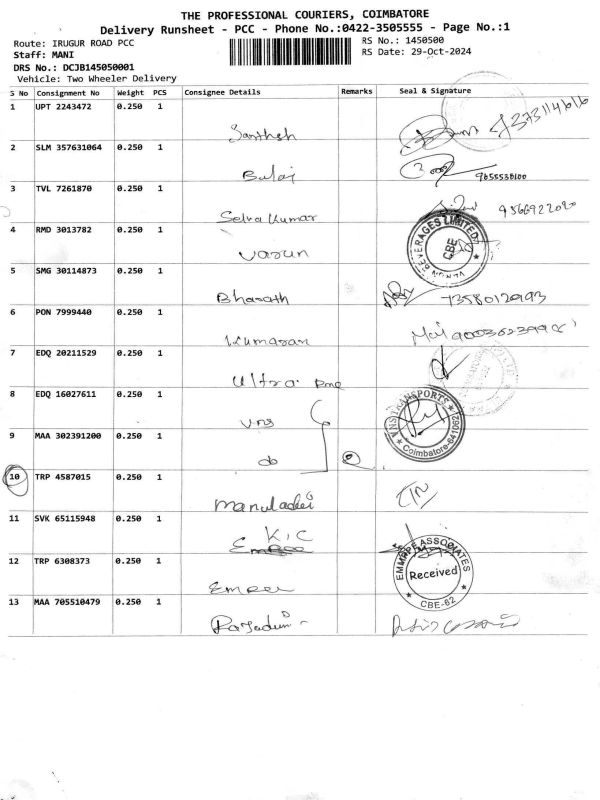 THE PROFESSIONAL COURIERS, COIMBATORE
Delivery Runsheet - PCC - Phone No.:0422-3505555 - Page No.:1
Route: IRUGUR ROAD PCC
RS No.: 1450500
Staff: MANI
RS Date: 29-Oct-2024
DRS No.: DCJB145050001
Vehicle: Two Wheeler Delivery
S No Consignment No Weight PCS Consignee Details Remarks Seal & Signature
1 UPT 2243472 0.250 1
Santhosh
2 SLM 357631064 0.250 1
Balaj 9655536100
3 TVL 7261870 0.250 1
Selva Kumar 9566922020
4 RMD 3013782 0.250 1
Varun
BEVERAGES LIMITED CBE
5 SMG 30114873 0.250 1
Bharath 7358012993
6 PON 7999440 0.250 1
Kumaran
7 EDQ 20211529 0.250 1
Ultra
8 EDQ 16027611 0.250 1
VNS
VNS TRANSPORTS
Coimbatore-641062
9 MAA 302391200 0.250 1
do
10 TRP 4587015 0.250 1
11 SVK 65115948 0.250 1
K.C
12 TRP 6308373 0.250 1
Emper
EMMRPE ASSOCIATES
Received
CBE-62
13 MAA 705510479 0.250 1